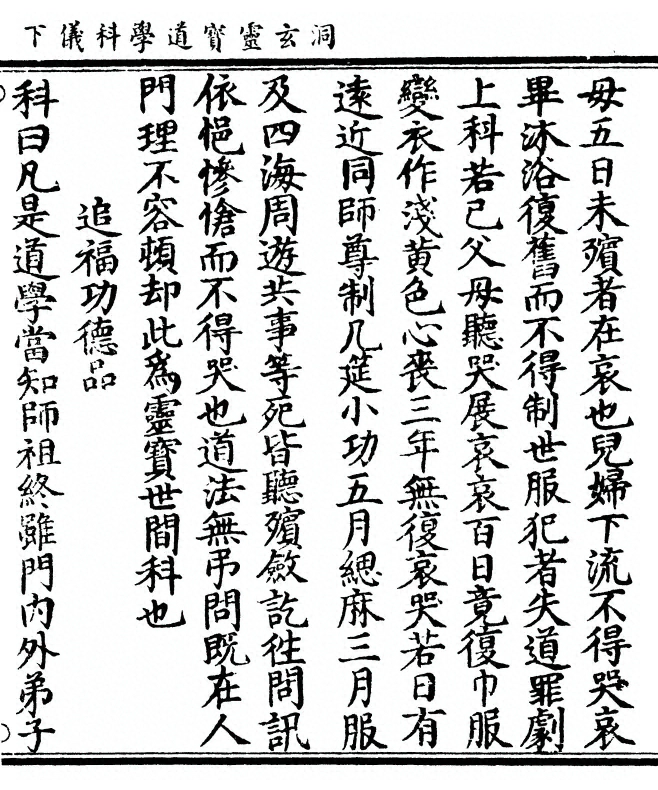 洞玄靈寳道學科儀下
母五日未殯者在哀也兒婦下流不得哭哀
畢沐浴復舊而不得制世服犯者失道罪劇
上科若己父母聽哭展哀哀百日竟復巾服
變衣作淺黄色心喪三年無復哀哭若日有
遠近同師尊制几筵小功五月緦麻三月服
及四海周遊共事等死皆聽殯斂訖徃問訊
依悒慘愴而不得哭也道法無弔問既在人
門理不容頓却此為靈寳世間科也
追福功德品
科曰凡是道學當知師祖終雖門内外弟子